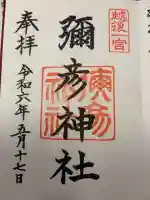 越後一宮
奉拝
彌彦神社
令和六年五月十七日